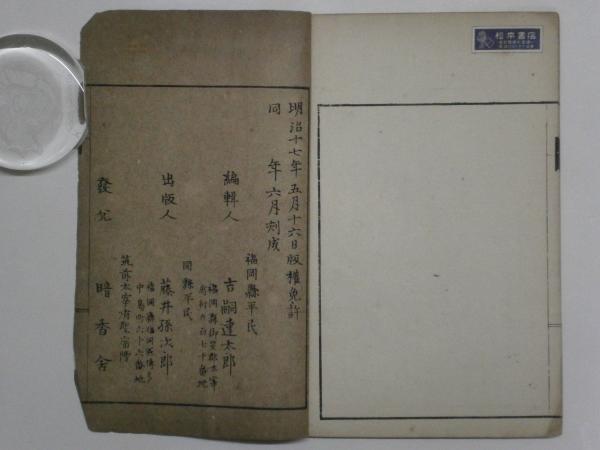 明治十七年五月十六日版權免許
同 年六月刻成
福岡縣平民
編輯人 吉嗣達太郎
福岡縣御笠郡太宰
府村九百七十番地
同縣平民
出版人 藤井孫次郎
福岡縣福岡區博多
中島町六十六番地
筑前太宰府
發兌 暗香舍
松本書店